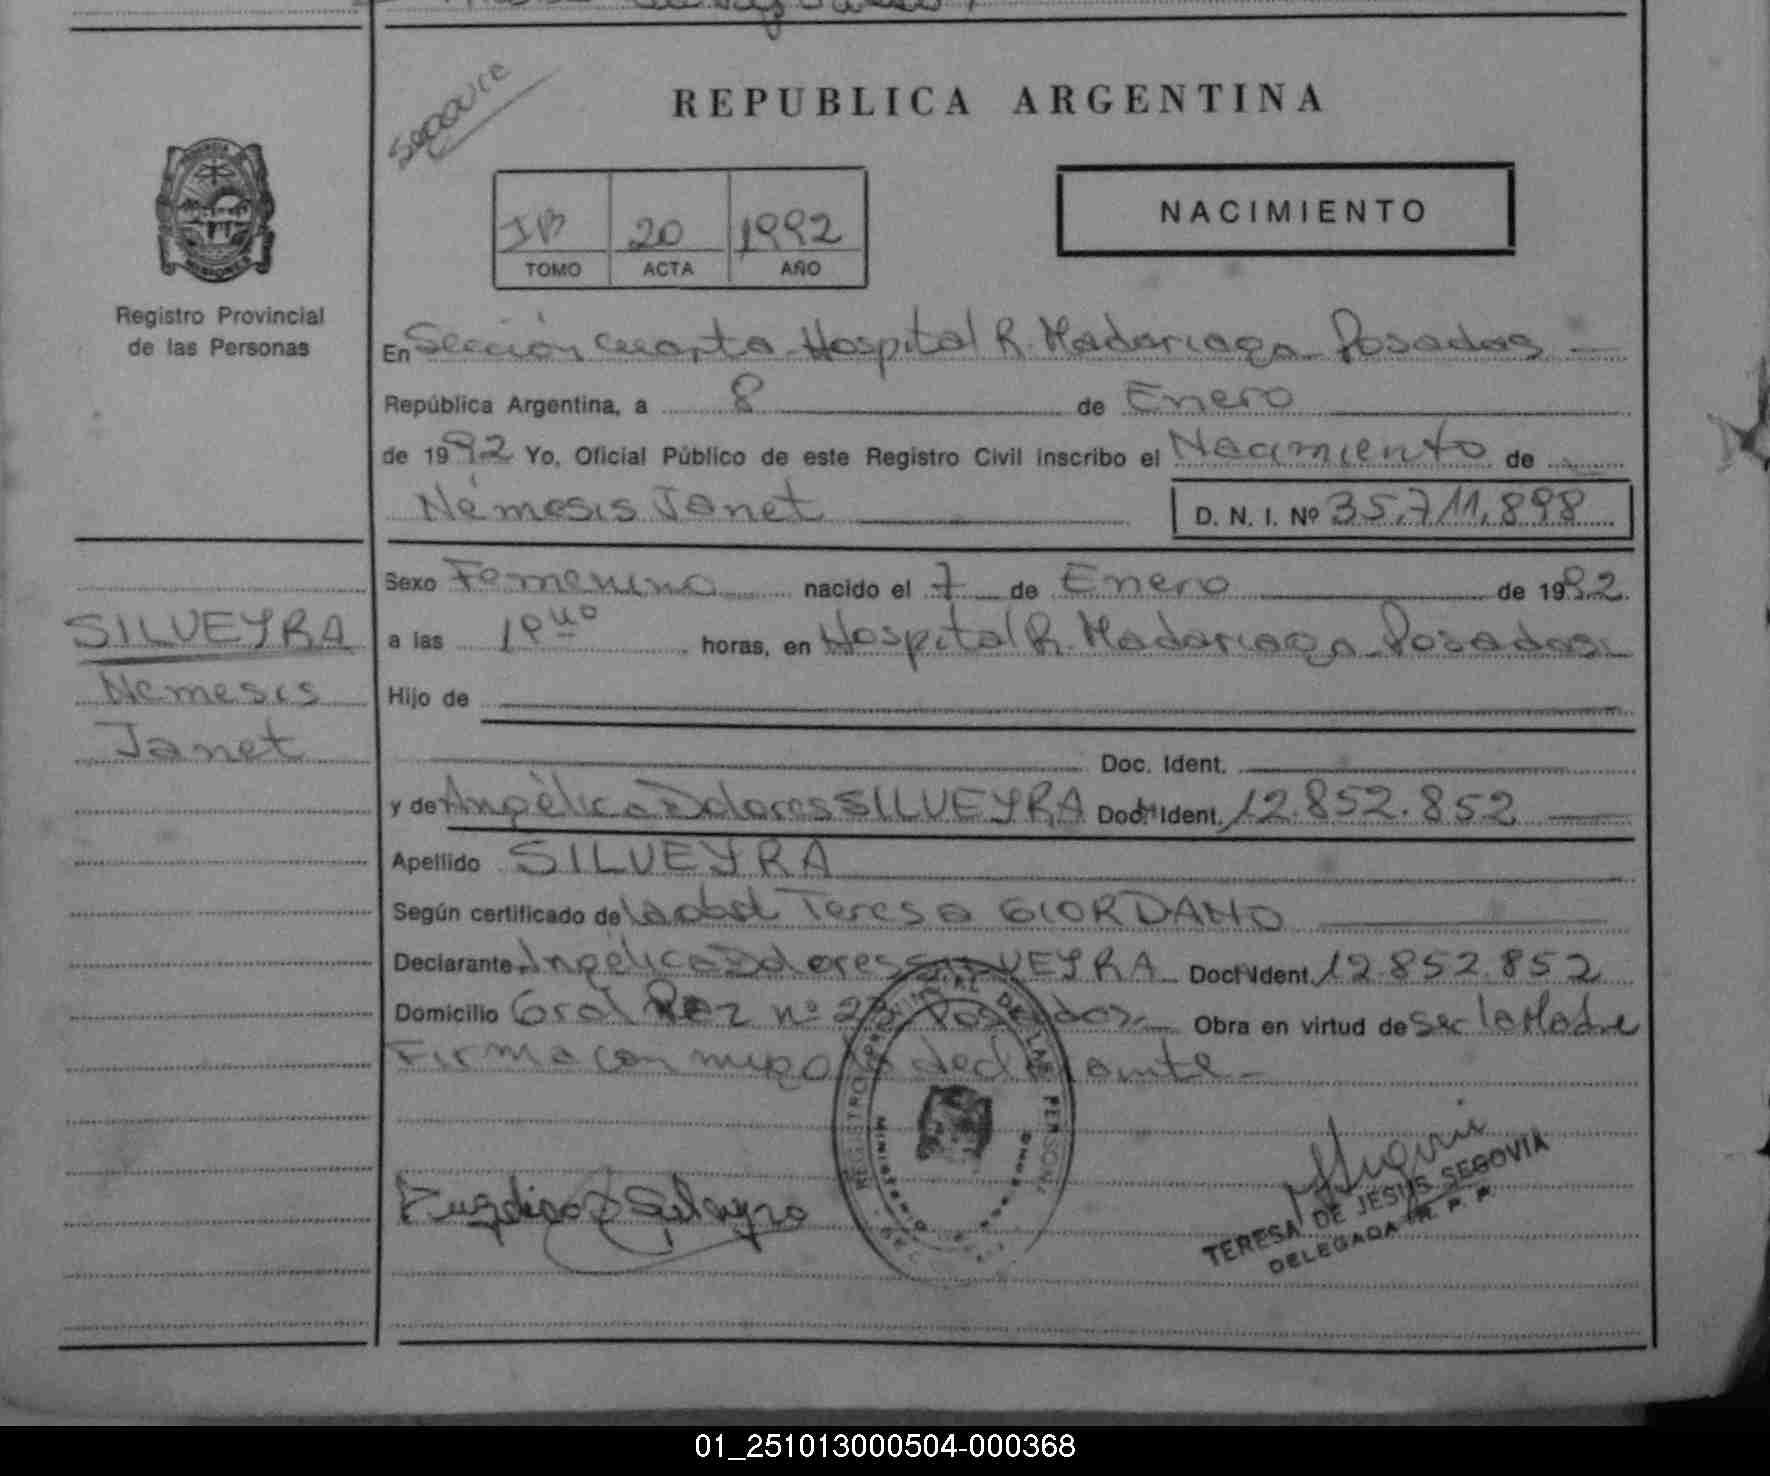 REPUBLICA ARGENTINA
NACIMIENTO
20 1992
TOMO ACTA AÑO
Registro Provincial
de las Personas
En Sección cuarta Hospital R. Madariaga Posadas
República Argentina, a 8 de Enero
de 1992 Yo, Oficial Público de este Registro Civil inscribo el Nacimiento de
Némesis Janet D. N. I. Nº 35.711.898
Sexo Femenino nacido el 7 de Enero de 1992
SILVEYRA
Nemesis
Janet
a las horas, en Hospital R. Madariaga Posadas
Hijo de
Doc. Ident.
y de Angélica Dolores SILVEYRA Doc. Ident. 12.852.852
Apellido SILVEYRA
Según certificado de la obst Teresa GIORDANO
Declarante Angélica Dolores SILVEYRA Doc. Ident. 12.852.852
Domicilio Gral nº Posadas Obra en virtud de ser la Madre
Firma con migo la declarante
REGISTRO PROVINCIAL DE LAS PERSONAS
TERESA DE JESUS SEGOVIA
DELEGADA R. P. P.
01_251013000504-000368